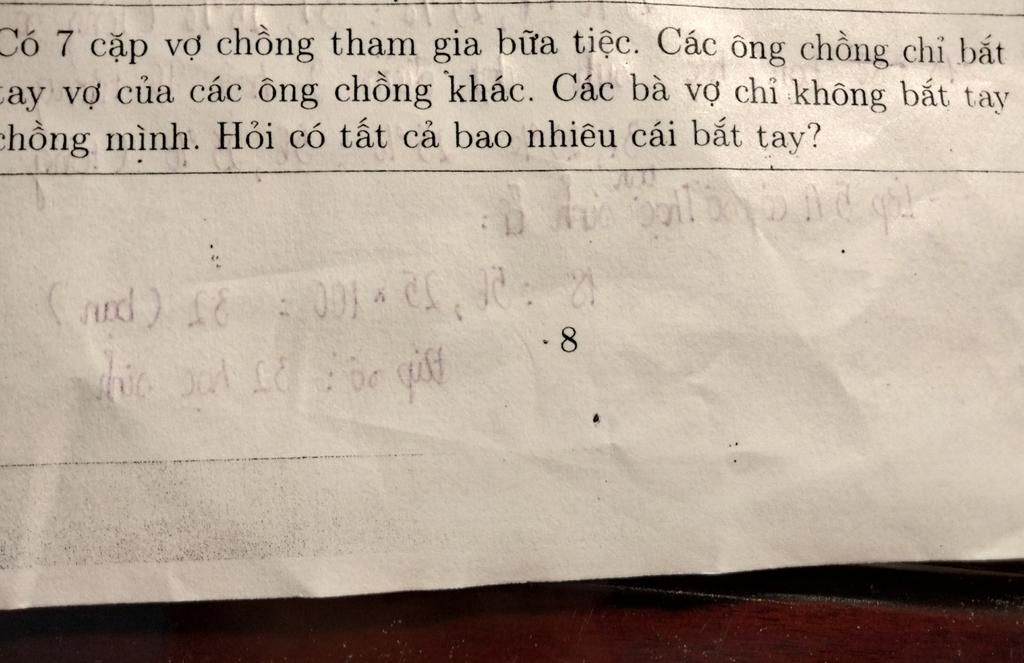 Có 7 cặp vợ chồng tham gia bữa tiệc. Các ông chồng chỉ bắt
tay vợ của các ông chồng khác. Các bà vợ chỉ không bắt tay
chồng mình. Hỏi có tất cả bao nhiêu cái bắt tay?
8